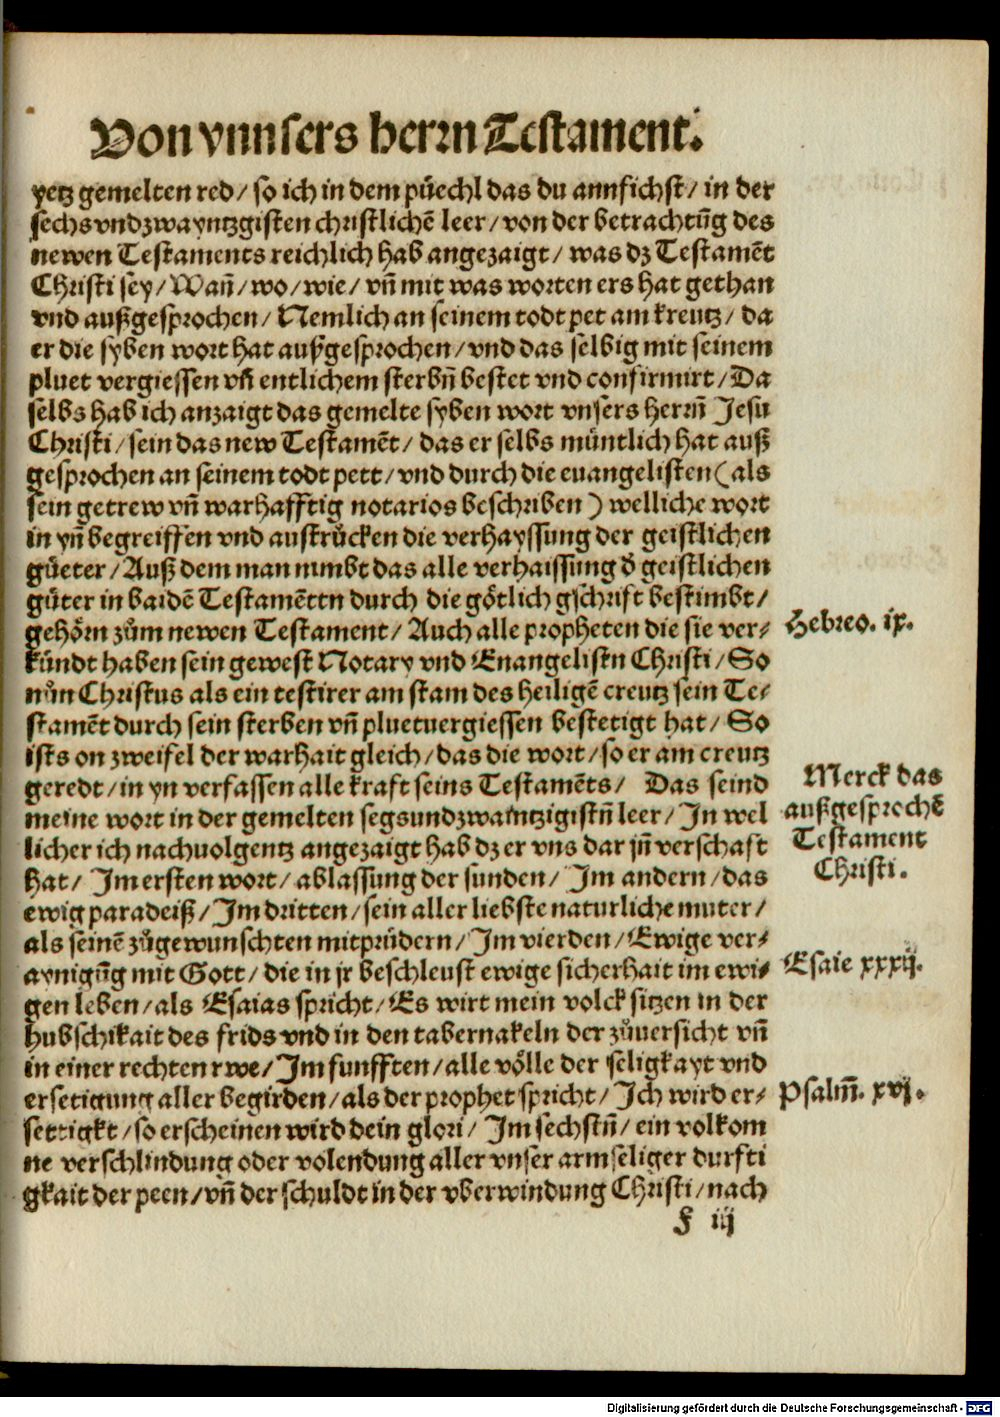 Von vnnsers herrn Testament.
yetz gemelten red/ so ich in dem püechl das du annfichst/ in der
sechs vnd zwayntzgisten christlichē leer/ von der betrachtūg des
newen Testaments reichlich hab angezaigt/ was dz Testamēt
Christi sey/ Wañ/ wo/ wie/ vñ mit was worten ers hat gethan
vnd außgesprochen/ Nemlich an seinem todt pet am kreutz/ da
er die syben wort hat außgesprochen/ vnd das selbig mit seinem
pluet vergiessen vñ entlichem sterbñ bestet vnd confirmirt/ Da
selbs hab ich anzaigt das gemelte syben wort vnsers herrñ Jesu
Christi/ sein das new Testamēt/ das er selbs müntlich hat auß
gesprochen an seinem todt pett/ vnd durch die euangelisten (als
sein getrew vñ warhafftig notarios beschriben) welliche wort
in yñ begreiffen vnd austrücken die verhayssung der geistlichen
güeter/ Auß dem man nimbt das alle verhaissung d̄ geistlichen
güter in baidē Testamēttn durch die götlich gschrift bestimbt/
gehörn zům newen Testament/ Auch alle propheten die sie ver-
kündt haben sein gewest Notary vnd Enangelistn Christi/ So
nůn Christus als ein testirer am stam des heiligē creutz sein Te-
stamēt durch sein sterben vñ pluetuergiessen bestetigt hat/ So
ists on zweifel der warhait gleich/ das die wort/ so er am creutz
geredt/ in yn verfassen alle kraft seins Testamēts/ Das seind
meine wort in der gemelten segsundzwaintzigistñ leer/ In wel
licher ich nachuolgentz angezaigt hab dz er vns dar jñ verschaft
hat/ Im ersten wort/ ablassung der sunden/ Im andern/ das
ewig paradeiß/ Im dritten/ sein aller liebste naturliche muter/
als seinē zůgewunschten mitprüdern/ Im vierden/ Ewige ver-
aynigūg mit Gott/ die in jr beschleust ewige sicherhait im ewi-
gen leben/ als Esaias spricht/ Es wirt mein volck sitzen in der
hubschikait des frids vnd in den tabernakeln der zůuersicht vñ
in einer rechten rwe/ Im funfften/ alle völle der seligkayt vnd
ersetigung aller begirden/ als der prophet spricht/ Ich wird er-
settigkt/ so erscheinen wird dein glori/ Im sechstñ/ ein volkom
ne verschlindung oder volendung aller vnser armseliger durfti
gkait der peen/ vñ der schuldt in der vberwindung Christi/ nach
F iij
Hebreo. ix.
Merck das
außgesprochē
Testament
Christi.
Esaie xxxij.
Psalm̄. xvj.
Digitalisierung gefördert durch die Deutsche Forschungsgemeinschaft - DFG